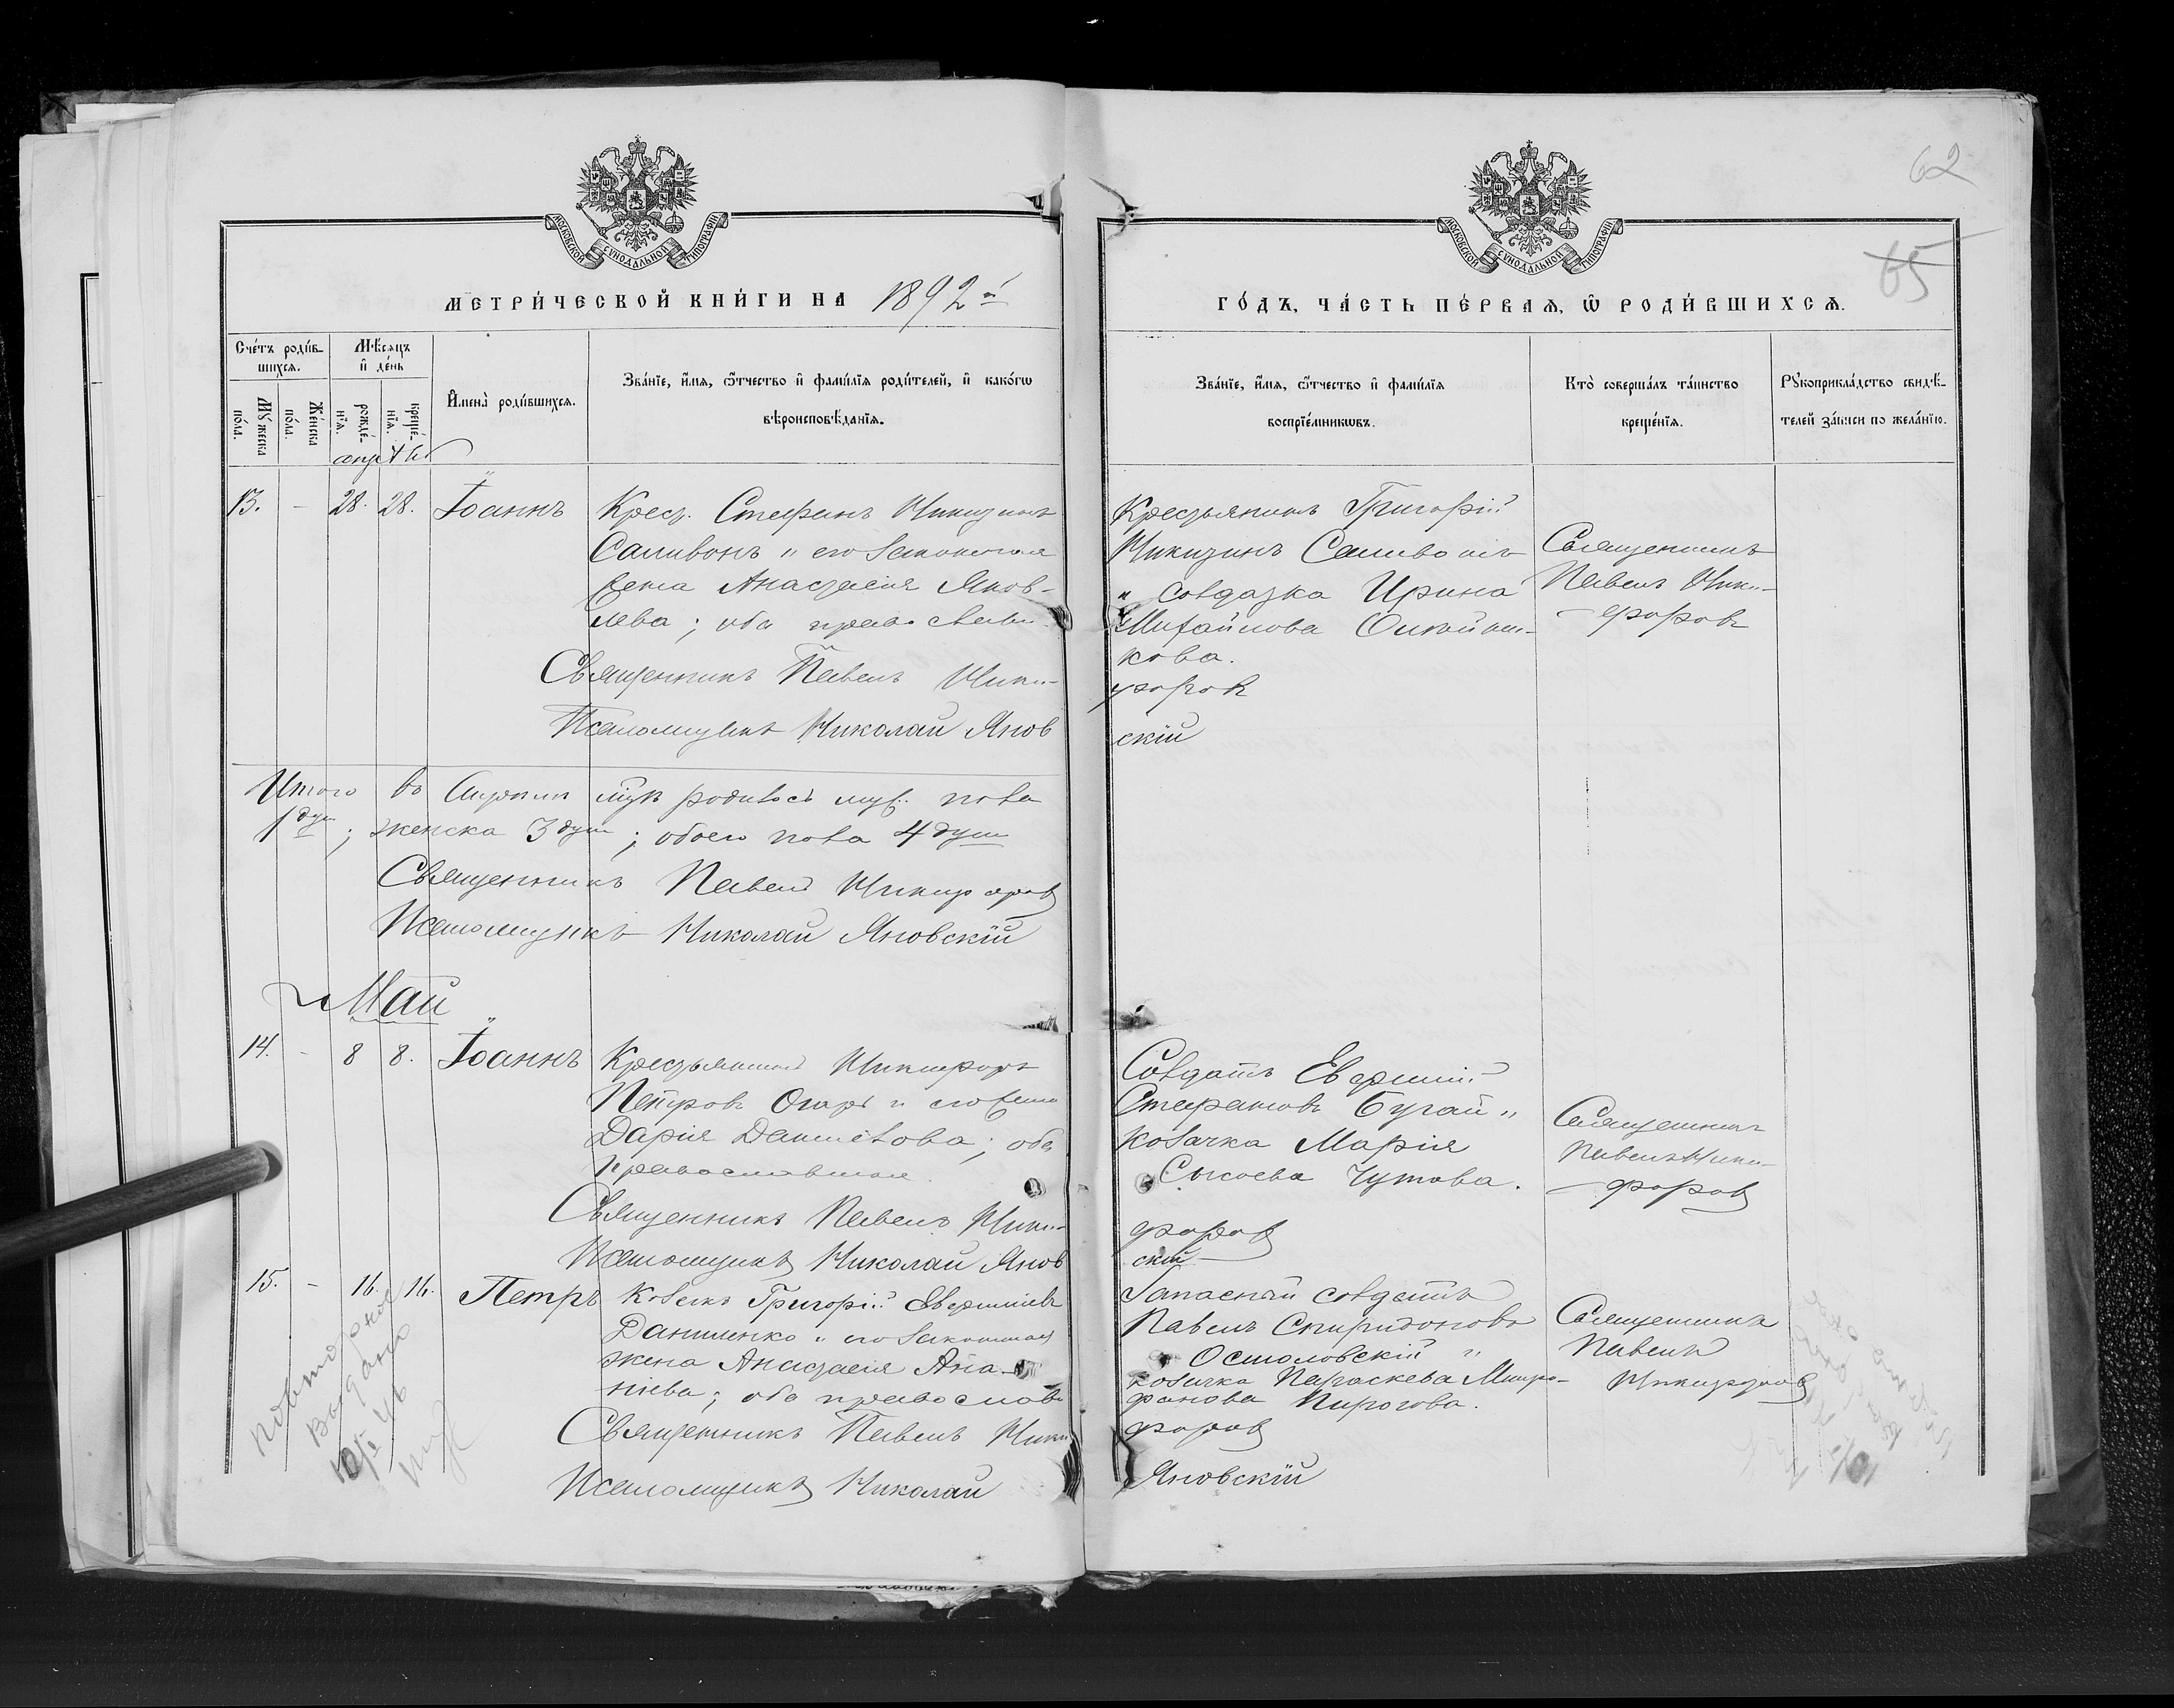 62
65
МОСКОВСКОЙ СѴНОДАЛЬНОЙ ТИПОГРАФІИ
МОСКОВСКОЙ СѴНОДАЛЬНОЙ ТИПОГРАФІИ
МЕТРИ́ЧЕСКОЙ КНИ́ГИ НА 1892й
ГО́ДЪ, ЧА́СТЬ ПЕ́РВАЯ, Ѡ҆ РОДИ́ВШИХСЯ.
Сче́тъ роди́в-
шихся.
Му́жеска
по́ла.
Же́нска
по́ла.
Мѣ́сяцъ
и҆ де́нь
рожде́-
нїя.
креще́-
нїя.
И҆мена̀ роди́вшихся.
Зва́нїе, и҆́мя, ѻ҆́тчество и҆ фами́лїя роди́телей, и҆ како́гѡ
вѣроисповѣ́данїя.
Зва́нїе, и҆́мя, ѻ҆́тчество и҆ фами́лїя
воспрїе́мникѡвъ.
Кто̀ соверша́лъ та́инство
креще́нїя.
Рꙋкоприкла́дство свидѣ́-
телей за́писи по жела́нїю.
13. - 28. 28. Іоаннъ
Крест. Стефанъ Никитинъ
Саливонъ и его законная
жена Анастасія Яков-
лева; оба православн.
Священникъ Павелъ Ники-
форовъ
Псаломщикъ Николай Янов
скій
Крестьянинъ Григорій
Никитинъ Саливонъ
и солдатка Ирина
Михайлова Олейни-
кова.
Священникъ
Павелъ Ники-
форовъ
Итого въ Апрѣлѣ м-цѣ родилось муж. пола
1 душ; женска 3 душ; обоего пола 4 душ
Священникъ Павелъ Никифоровъ
Псаломщикъ Николай Яновскій
Май
14. - 8 8. Іоаннъ
Крестьянинъ Никифоръ
Петровъ и его жена
Дарія Данилова; оба
православные.
Священникъ Павелъ Ники-
форовъ
Псаломщикъ Николай Янов
скій
Солдатъ Евфимій
Стефановъ Бугай и
козачка Марія
Сысоева Чутова.
Священникъ
Павелъ Ники-
форовъ
15. - 16. 16. Петръ
Козакъ Григорій Евфиміевъ
Даниленко и его законная
жена Анастасія Ана-
ніева; оба православн
Священникъ Павелъ Ники
форовъ
Псаломщикъ Николай
Яновскій
Запасный солдатъ
Павелъ Спиридоновъ
Осмоловскій и
козачка Параскева Митро-
фанова Пирогова.
Священникъ
Павелъ
Никифоровъ
повторное
выдано